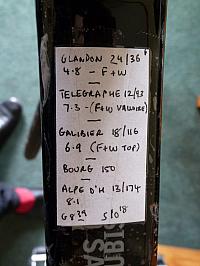 GLANDON 24/36
4.8 - F+W
—
TELEGRAPHE 12/93
7.3 - (F+W VALLOIRE)
—
GALIBIER 18/116
6.9 (F+W TOP)
—
BOURG 150
—
ALPE D'H 13/174
8.1